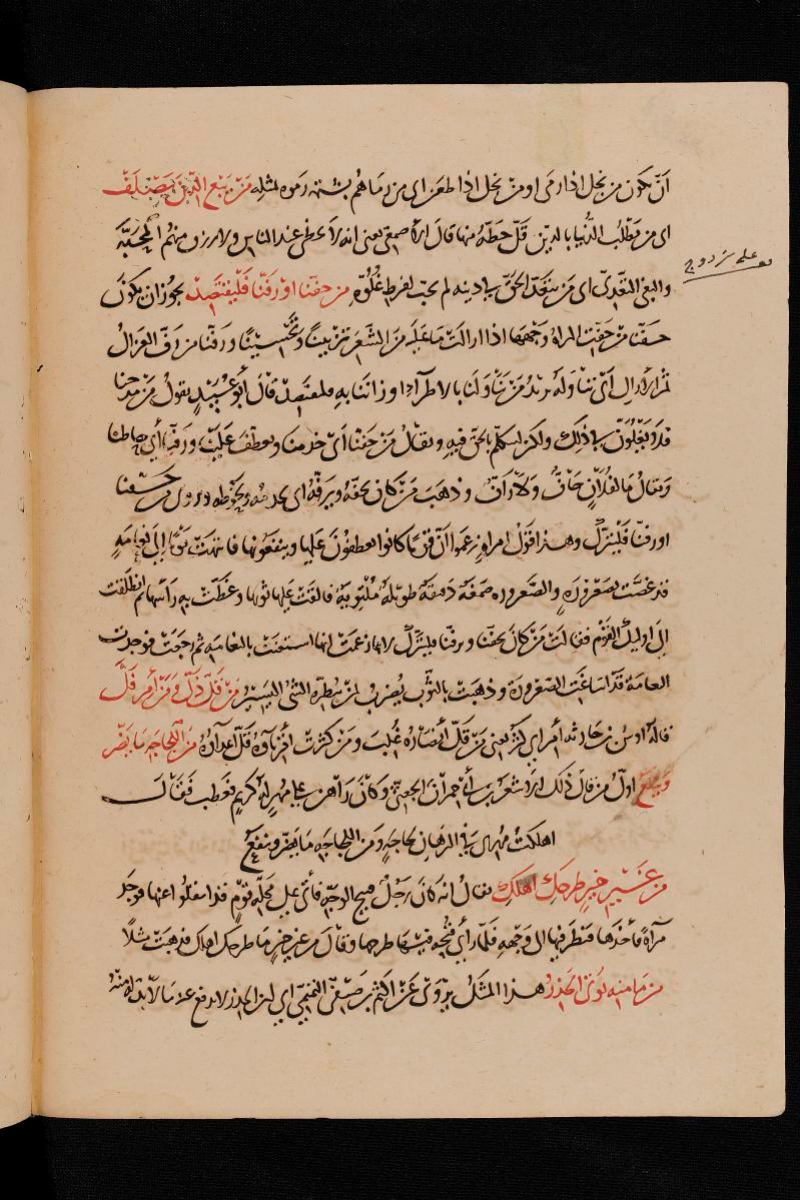 أن يكون من نجل اذا رمى او من نجل اذا طعن اى من رماهم بشتم رموه بمثله من يبغ الدين يصلف
اى من يطلب الدنيا بالدين قل حظه منها قال الاصمعى يعنى انه لا يحظى عند الناس ولا يرزق منهم المحبة
والبغى التعدى اى من يتعد الحق فى دينه لم يحب لفرط غلوه من حفنا او رفنا فليقتصد يجوز ان يكون
حفنا من حفت المراة وجهها اذا ازالت ما عليه من الشعر تزيينا وتحسينا ورفنا من رف الغزال
ثمر الاراك اى تناوله يريد من تناولنا بالاطراء او زاننا به فليقتصد قال ابو عبيد يقول من مدحنا
فلا يغلون فى ذلك ولكن ليتكلم بالحق فيه ويقال من حفنا اى خدمنا وتعطف علينا ورفنا اى حاطنا
ويقال ما لفلان حاف ولا راف وذهب من كان يحفه ويرفه اى يخدمه ويحوطه وروى من حفنا
او رفنا فليترك وهذا قول امراة زعموا ان قوما كانوا يعطفون عليها وينفعونها فانتهت يوما الى نعامة
قد غصت بصعرورة والصعرورة صمغة دقيقة طويلة ملتوية فالقت عليها ثوبها وغطت به راسها ثم انطلقت
الى اوليك القوم فقالت من كان يحفنا ويرفنا فليترك لانها زعمت انها استغنت بالنعامة ثم رجعت فوجدت
النعامة قد اساغت الصعرورة وذهبت بالثوب يضرب لمن يبطره الشئ اليسير من قل ذل ومن أمر فل
قاله اوس بن حارثة أمر اى كثر يعنى من قل أنصاره غلب ومن كثرت أقرباؤه قل أعداؤه من اللجاجة ما يضر
وينفع اول من قال ذلك الاشعر بن أبى حمران الجعفى وكان راهن على مهر له كريم فعطب فقال
اهلكت مهرى فى الرهان لجاجة ومن اللجاجة ما يضر وينفع
من غير خير طرحك اهلك يقال انه كان رجل قبيح الوجه فأتى على محلة قوم قد انتقلوا عنها فوجد
مرآة فأخذها فنظر فيها الى وجهه فلما رأى قبحه فيها طرحها وقال من غير خير ما طرحك اهلك فذهبت مثلا
من مامنه يوتى الحذر هذا المثل يروى عن اكثم بن صيفى التميمى اى ان الحذر لا يدفع عنه ما لا بد له منه